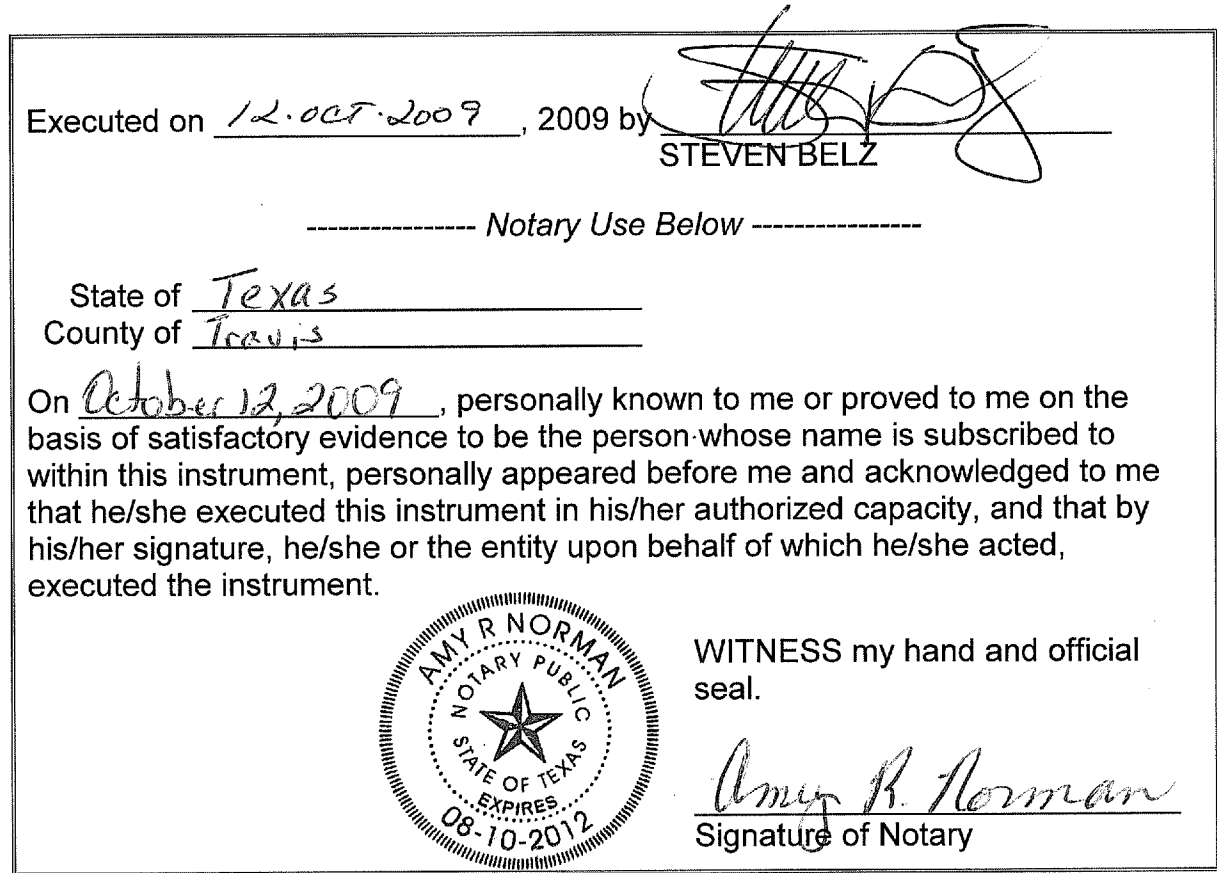 Executed on 12.OCT.2009, 2009 by
STEVEN BELZ
---------------- Notary Use Below ----------------
State of Texas
County of Travis
On October 12, 2009, personally known to me or proved to me on the
basis of satisfactory evidence to be the person whose name is subscribed to
within this instrument, personally appeared before me and acknowledged to me
that he/she executed this instrument in his/her authorized capacity, and that by
his/her signature, he/she or the entity upon behalf of which he/she acted,
executed the instrument.
AMY R NORMAN
NOTARY PUBLIC
STATE OF TEXAS
EXPIRES
08-10-2012
WITNESS my hand and official
seal.
Amy R. Norman
Signature of Notary